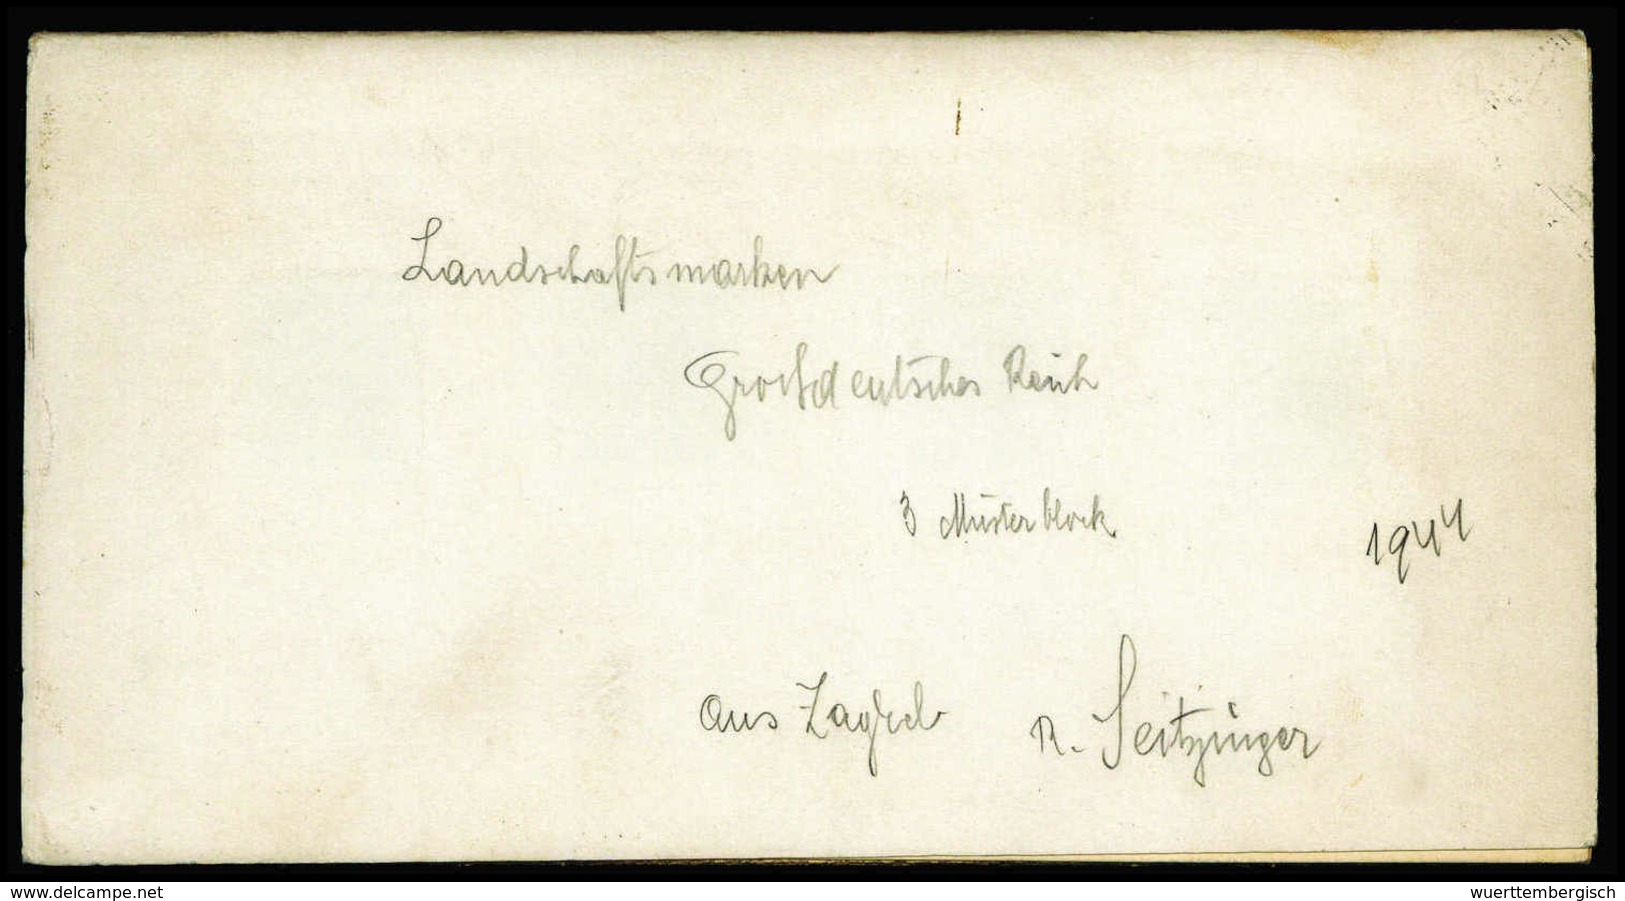 Landschaftsmarken
Großdeutsches Reich
3 Musterblock
1944
aus Zagreb R. Seitzinger
www.delcampe.net
wuerttembergisch